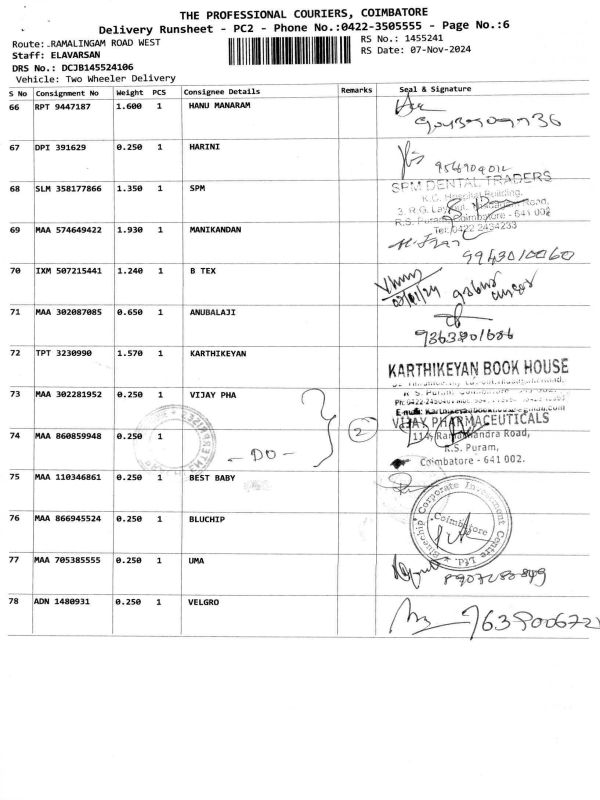 THE PROFESSIONAL COURIERS, COIMBATORE
Delivery Runsheet - PC2 - Phone No.:0422-3505555 - Page No.:6
Route: RAMALINGAM ROAD WEST
RS No.: 1455241
Staff: ELAVARSAN
RS Date: 07-Nov-2024
DRS No.: DCJB145524106
Vehicle: Two Wheeler Delivery
S No Consignment No Weight PCS Consignee Details Remarks Seal & Signature
66 RPT 9447187 1.600 1 HANU MANARAM
67 DPI 391629 0.250 1 HARINI
68 SLM 358177866 1.350 1 SPM
SPM DENTAL TRADERS
K.G. Hospital Building,
R.S. Puram, Coimbatore - 641 002
Tel: 0422 2434233
69 MAA 574649422 1.930 1 MANIKANDAN
9943010060
70 IXM 507215441 1.240 1 B TEX
71 MAA 302087085 0.650 1 ANUBALAJI
72 TPT 3230990 1.570 1 KARTHIKEYAN
KARTHIKEYAN BOOK HOUSE
73 MAA 302281952 0.250 1 VIJAY PHA
VIJAY PHARMACEUTICALS
74 MAA 860859948 0.250 1
- DO -
2
114, Ramachandra Road,
R.S. Puram,
Coimbatore - 641 002.
75 MAA 110346861 0.250 1 BEST BABY
76 MAA 866945524 0.250 1 BLUCHIP
Bluechip Corporate Investment Centre Ltd.
Coimbatore
77 MAA 705385555 0.250 1 UMA
78 ADN 1480931 0.250 1 VELGRO